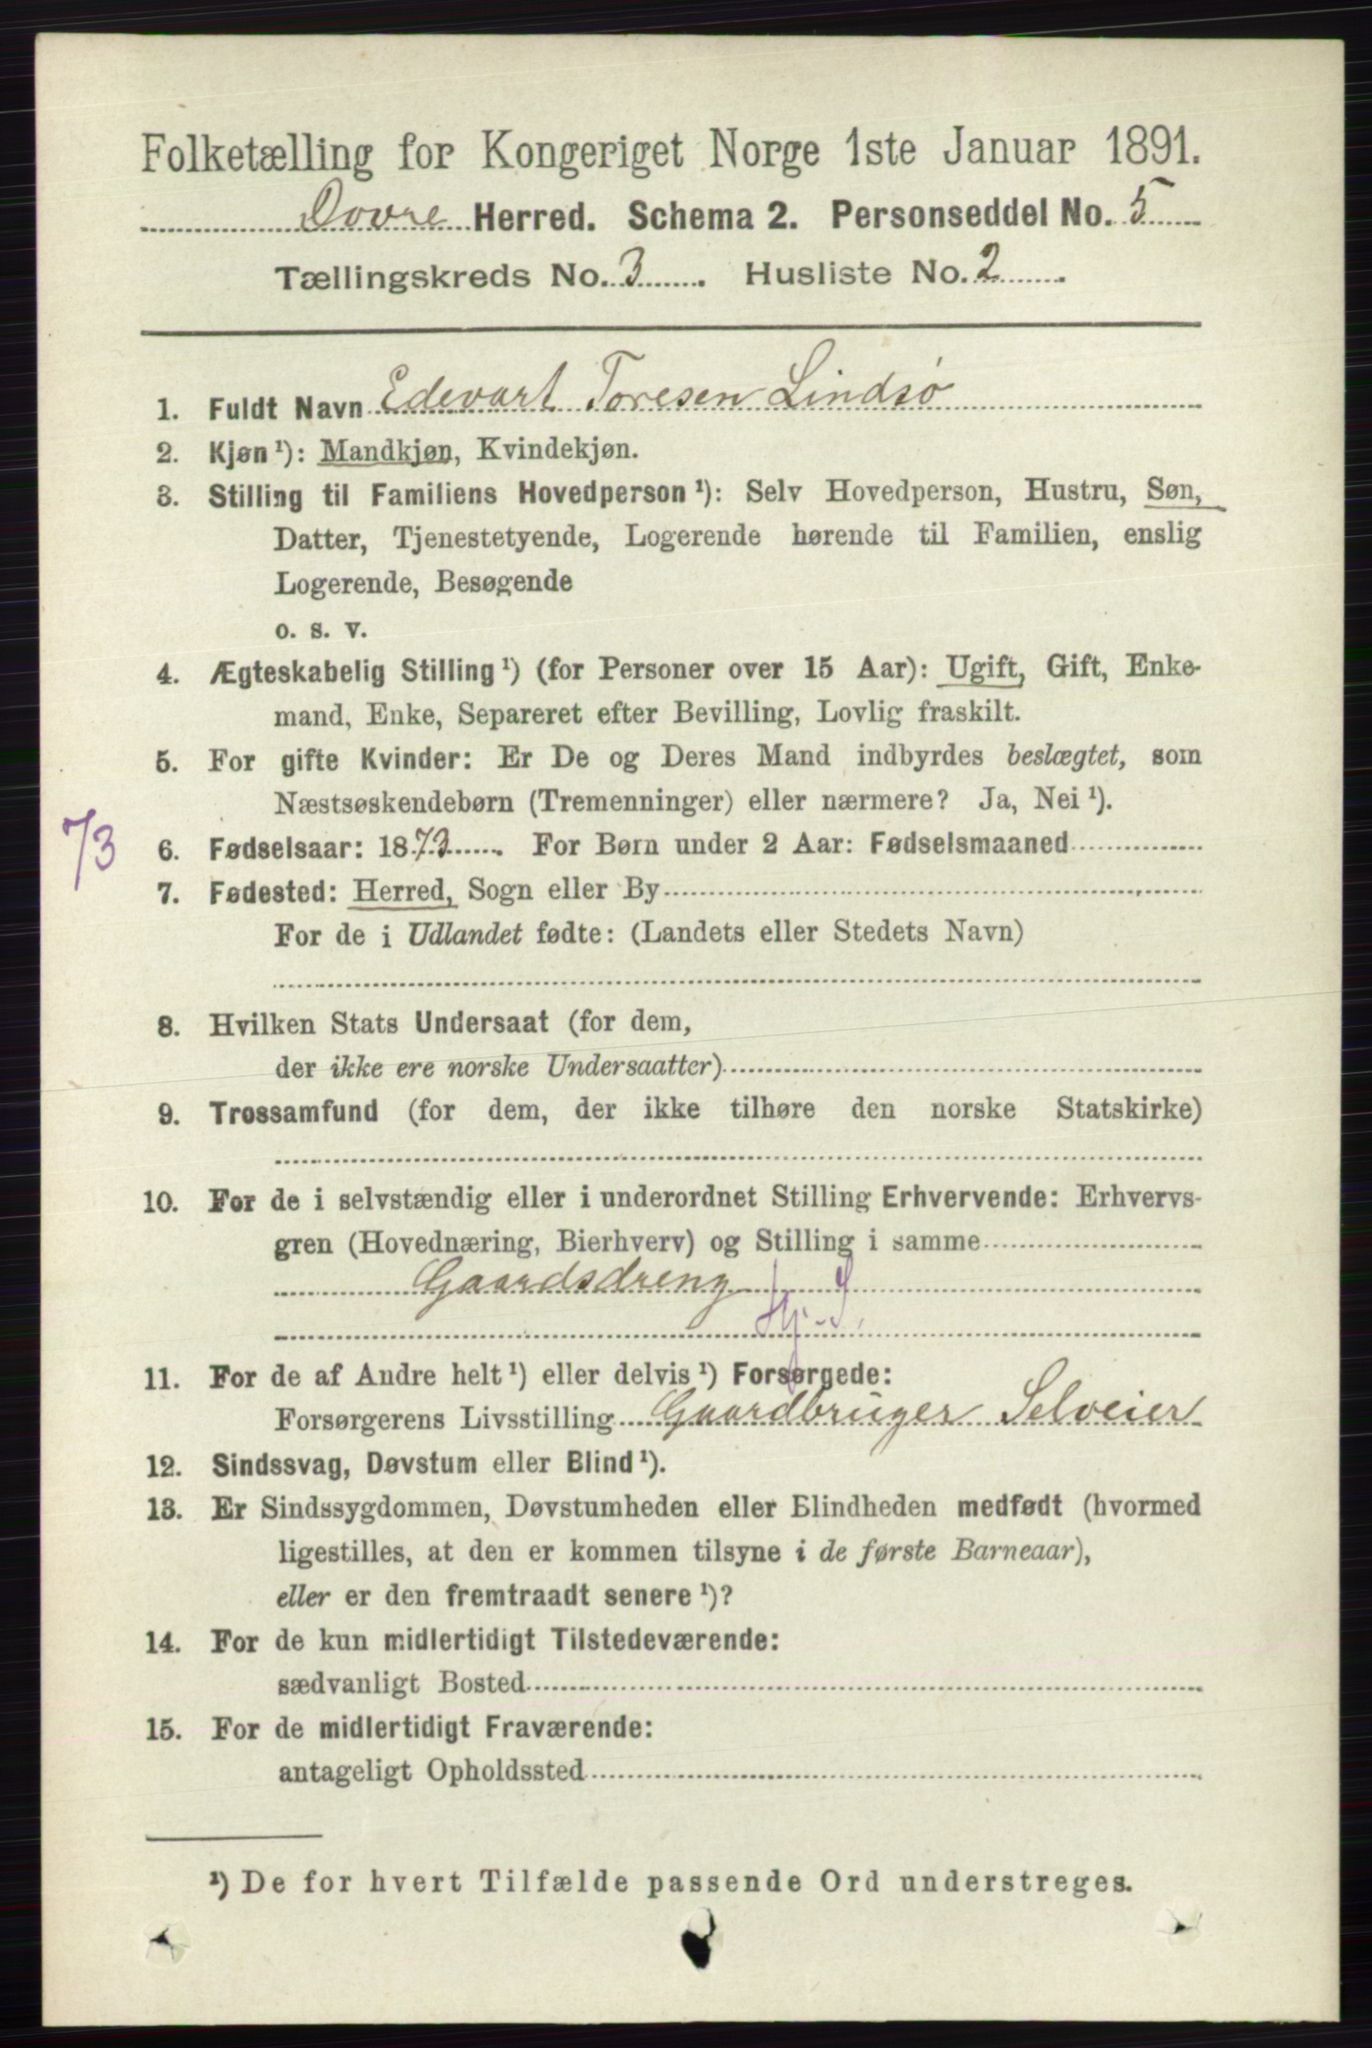 Folketælling for Kongeriget Norge 1ste Januar 1891.
Dovre Herred. Schema 2. Personseddel No. 5
Tællingskreds No. 3. Husliste No. 2
1. Fuldt Navn Edevart Toresen Lindsø
2. Kjøn¹): Mandkjøn, Kvindekjøn.
3. Stilling til Familiens Hovedperson¹): Selv Hovedperson, Hustru, Søn,
Datter, Tjenestetyende, Logerende hørende til Familien, enslig
Logerende, Besøgende
o. s. v.
4. Ægteskabelig Stilling¹) (for Personer over 15 Aar): Ugift, Gift, Enke-
mand, Enke, Separeret efter Bevilling, Lovlig fraskilt.
5. For gifte Kvinder: Er De og Deres Mand indbyrdes beslægtet, som
Næstsøskendebørn (Tremenninger) eller nærmere? Ja, Nei¹).
73
6. Fødselsaar: 1873. For Børn under 2 Aar: Fødselsmaaned
7. Fødested: Herred, Sogn eller By
For de i Udlandet fødte: (Landets eller Stedets Navn)
8. Hvilken Stats Undersaat (for dem,
der ikke ere norske Undersaatter)
9. Trossamfund (for dem, der ikke tilhøre den norske Statskirke)
10. For de i selvstændig eller i underordnet Stilling Erhvervende: Erhvervs-
gren (Hovednæring, Bierhverv) og Stilling i samme
Gaardsdreng
11. For de af Andre helt¹) eller delvis¹) Forsørgede:
Forsørgerens Livsstilling Gaardbruger Selveier
12. Sindssvag, Døvstum eller Blind¹).
13. Er Sindssygdommen, Døvstumheden eller Blindheden medfødt (hvormed
ligestilles, at den er kommen tilsyne i de første Barneaar),
eller er den fremtraadt senere¹)?
14. For de kun midlertidigt Tilstedeværende:
sædvanligt Bosted
15. For de midlertidigt Fraværende:
antageligt Opholdssted
¹) De for hvert Tilfælde passende Ord understreges.